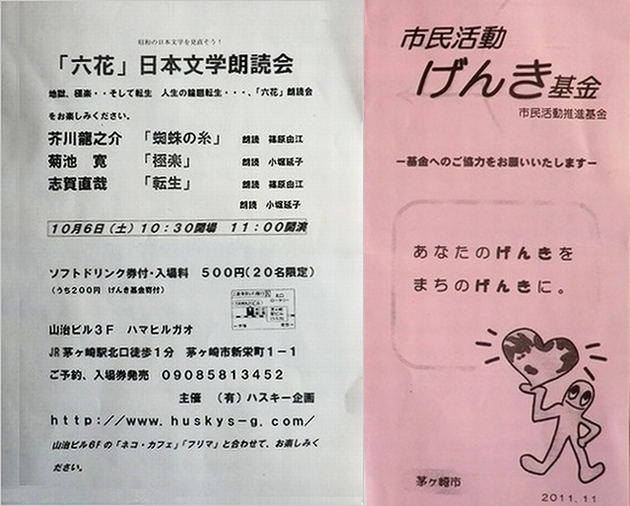 昭和の日本文学を見直そう！
「六花」日本文学朗読会
地獄、極楽・・そして転生　人生の輪廻転生・・・、「六花」朗読会
をお楽しみください。
芥川龍之介　「蜘蛛の糸」　朗読　篠原由江
菊池　寛　「極楽」　朗読　小堀延子
志賀直哉　「転生」　朗読　篠原由江
朗読　小堀延子
１０月６日（土）１０：３０開場　１１：００開演
ソフトドリンク券付・入場料　５００円（２０名限定）
（うち２００円　げんき基金寄付）
山治ビル３Ｆ　ハマヒルガオ
JR茅ヶ崎駅北口徒歩１分　茅ヶ崎市新栄町１－１
ご予約、入場券発売　０９０８５８１３４５２
主催　（有）ハスキー企画
http://www.huskys-g.com/
山治ビル6Fの「ネコ・カフェ」「フリマ」と合わせて、お楽しみく
ださい。
市民活動
げんき基金
市民活動推進基金
ー基金へのご協力をお願いいたしますー
あなたのげんきを
まちのげんきに。
茅ヶ崎市
2011.11